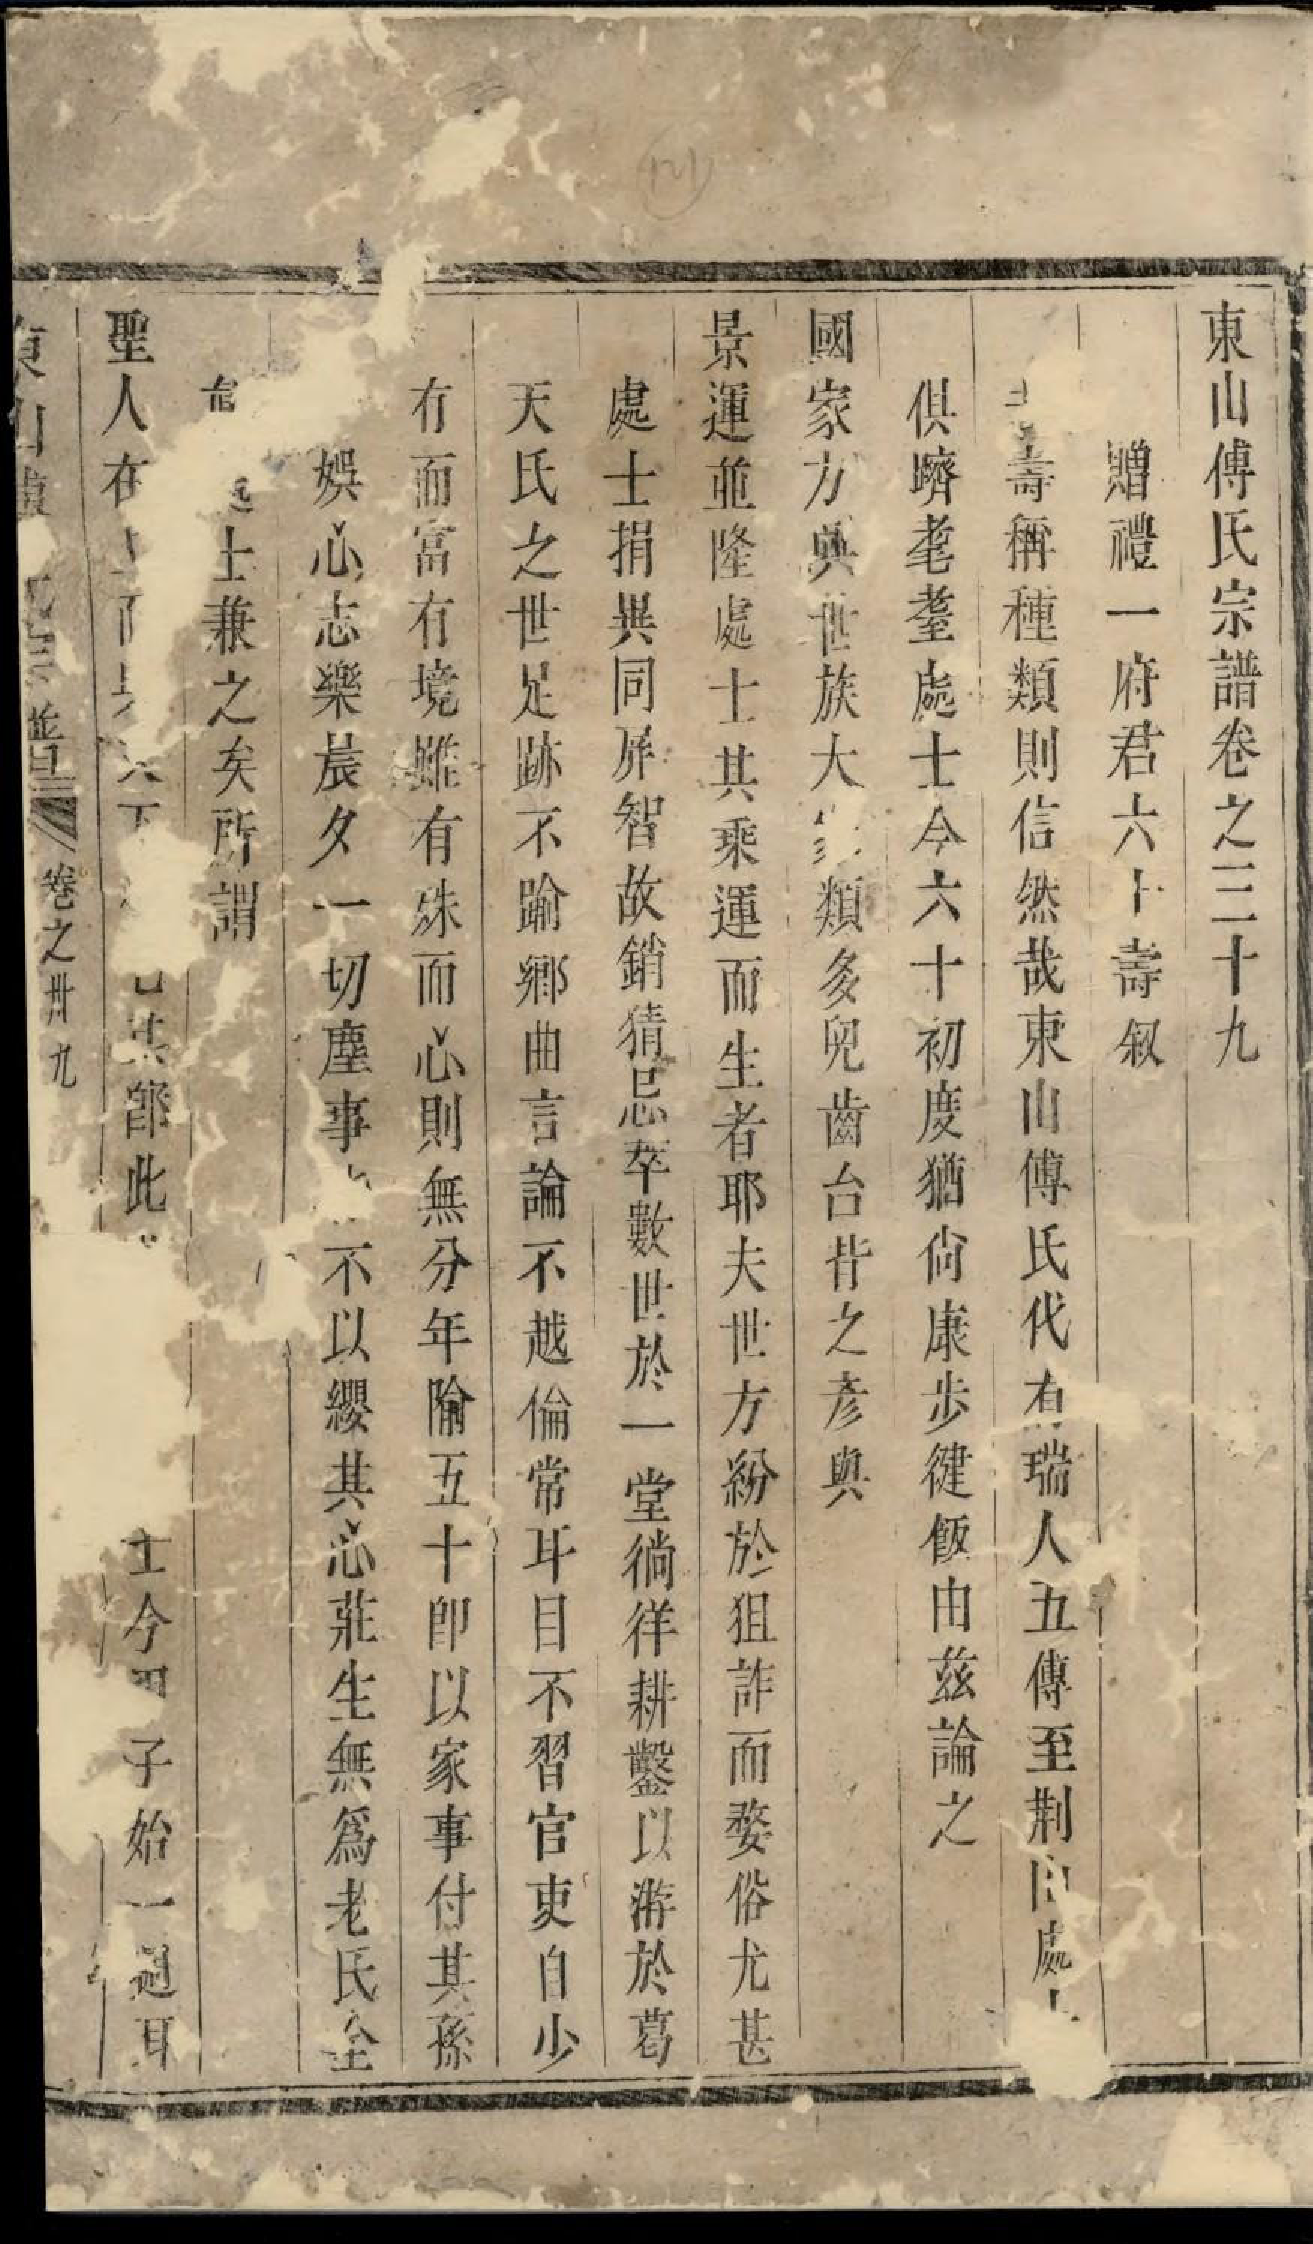 東山傅氏宗譜卷之三十九
贈禮一府君六十壽叙
壽稱種類則信然哉東山傅氏代有瑞人五傳至荆山處士
俱躋耄耋處士今六十初度猶尙康步健飯由兹論之
國家方興世族大家類多兒齒台背之彥與
景運並隆處士其乘運而生者耶夫世方紛於狙詐而婺俗尤甚
處士捐異同屏智故銷猜忌萃數世於一堂徜徉耕鑿以游於葛
天氏之世足跡不踰鄉曲言論不越倫常耳目不習官吏自少
有而富有境雖有殊而心則無分年隃五十卽以家事付其孫
娛心志樂晨夕一切塵事不以纓其心莊生無爲老氏全
士兼之矣所謂
聖人在 其部此 士今 子始一過耳
卷之卅九